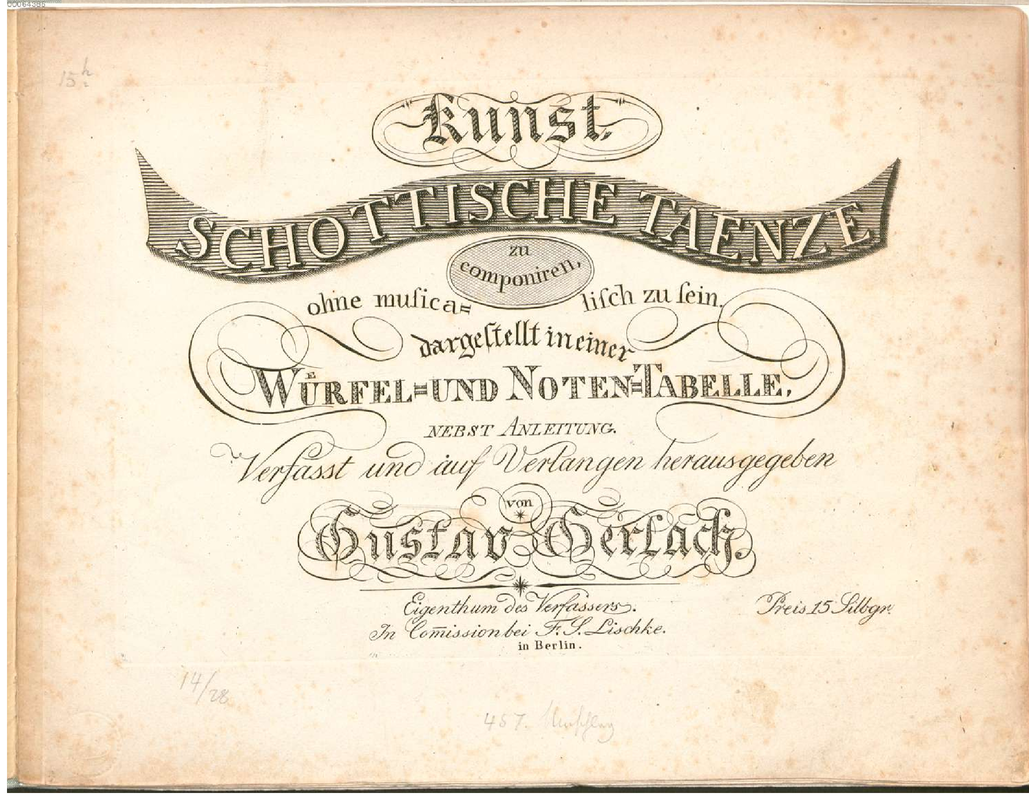 15
Kunst,
SCHOTTISCHE TAENZE
zu
componiren,
ohne musica= lisch zu sein,
dargestellt in einer
WÜRFEL=UND NOTEN=TABELLE,
NEBST ANLEITUNG.
Verfasst und auf Verlangen herausgegeben
von
Gustav Gerlach.
Eigenthum des Verfassers.
Preis 15 Silbgr.
In Com̅ission bei F. S. Lischke.
in Berlin.
14/28
457.